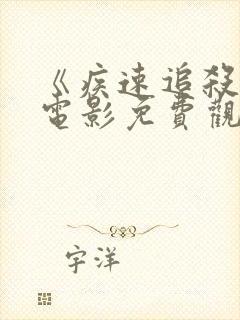 《疾速追殺
電影免費觀
宇洋